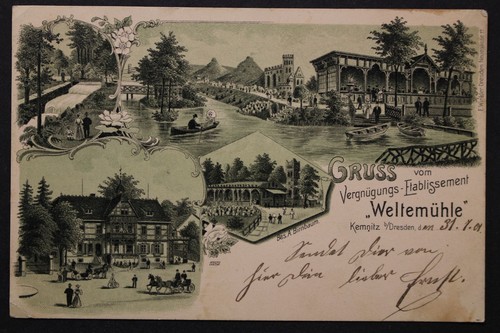 GRUSS vom
Vergnügungs-Etablissement
„Weltemühle"
Kemnitz b/Dresden, den 31.7.01
Bes. A. Birnbaum.
Sendet Dir von
hier Dein lieber Ernst.